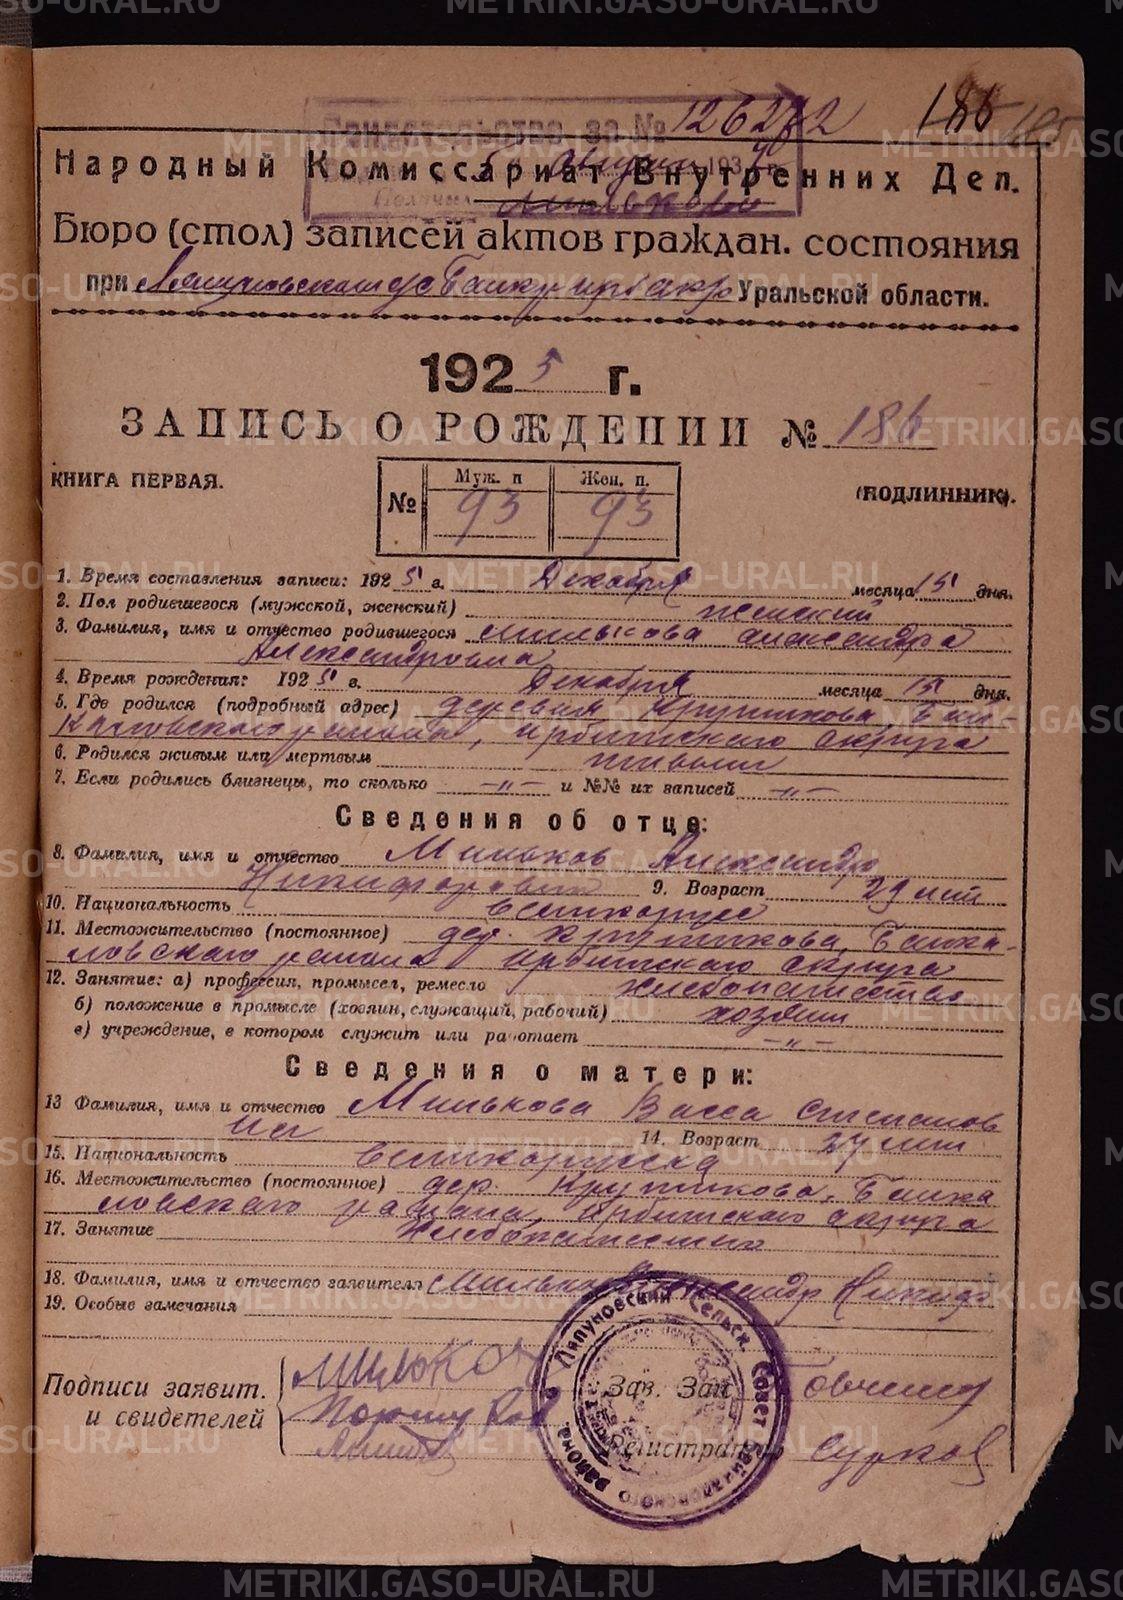 126272 186
Свидетельство за №
августа 193 г.
Народный Комиссариат Внутренних Дел.
Бюро (стол) записей актов граждан. состояния
при Уральской области.
1925 г.
ЗАПИСЬ О РОЖДЕНИИ № 186
КНИГА ПЕРВАЯ. (ПОДЛИННИК).
№ Муж. п Жен. п.
93 93
1. Время составления записи: 1925 г. Декабря месяца 15 дня.
2. Пол родившегося (мужской, женский) женский
3. Фамилия, имя и отчество родившегося Милькова Александра
Александровна
4. Время рождения: 1925 г. Декабря месяца 15 дня.
5. Где родился (подробный адрес) деревня Крутикова, Бай-
каловского района, Ирбитского округа
6. Родился живым или мертвым живым
7. Если родились близнецы, то сколько —„— и №№ их записей —„—
Сведения об отце:
8. Фамилия, имя и отчество Мильков Александр
Никифорович 9. Возраст 29 лет
10. Национальность великорусс
11. Местожительство (постоянное) дер. Крутикова, Байка-
ловского района Ирбитского округа
12. Занятие: а) профессия, промысел, ремесло хлебопашество
б) положение в промысле (хозяин, служащий, рабочий) хозяин
в) учреждение, в котором служит или работает —„—
Сведения о матери:
13 Фамилия, имя и отчество Милькова Васса Степанов
на 14. Возраст 27 лет
15. Национальность великорусска
16. Местожительство (постоянное) дер. Крутикова, Байка
ловского района, Ирбитского округа
17. Занятие Хлебопашество
18. Фамилия, имя и отчество заявителя Мильков Александр Никиф
19. Особые замечания
Подписи заявит.
и свидетелей
Мильков
Зав. Зап
Регистратор Сурков
Ляпуновский Сельск. Совет Байкаловского района
METRIKI.GASO-URAL.RU